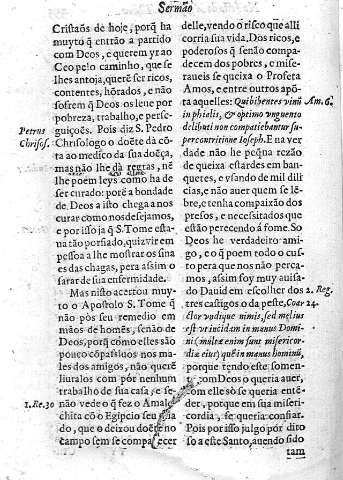 Sermão
Cristãos de hoje, porq̃ ha
muyto q̃ entrão a partido
com Deos, e querem yr ao
Ceo pelo caminho, que se
lhes antoja, querẽ ser ricos,
contentes, hõrados, e não
sofrem q̃ Deos os leue por
pobreza, trabalho, e perse-
guiçoẽs. Pois diz S. Pedro
Chrisologo o doẽte dà cõ-
ta ao medico da sua doẽça,
mas não lhe da regras, nẽ
lhe poem leys como ha de
ser curado: porẽ a bondade
de Deos a isto chega a nos
curar como nos desejamos,
e por isso ja q̃ S. Tome esta-
ua tão porfiado, quiz vir em
pessoa a lhe mostrar os sina
es das chagas, pera assim o
sarar de sua enfermidade.
Mas nisto acertou muy-
to o Apostolo S. Tome q̃
não pòs seu remedio em
mãos de homẽs, senão de
Deos, porq̃ como elles são
pouco cõpassiuos nos ma-
les dos amigos, não quere
liuralos com pór nenhum
trabalho de sua casa, e se-
não vede o q̃ fez o Amale-
chita cõ o Egipcio seu cria
do, que o deixou doẽte no
campo sem se compadecer
Petrus
Chrisos.
1. Re. 30
delle, vendo o risco que alli
corria sua vida. Dos ricos, e
poderosos q̃ senão compa-
decem dos pobres, e mise-
raueis se queixa o Profeta
Amos, e entre outros apõ-
ta aquelles: Quibibentes vinũ
in phialis, & optimo vnguento
delibuti non compatiebantur su-
per contritione Ioseph. E na ver
dade não he peq̃na rezão
de queixa estardes em ban-
queres, e ysando de mil dili
cias, e não auer quem se lẽ-
bre, e tenha compaixão dos
presos, e necessitados que
estão perecendo á fome. So
Deos he verdadeiro ami-
go, e o q̃ poem todo o cus-
to pera que nos não perca-
mos, assim foy muy auisa-
do Dauid em escolher dos
tres castigos o da peste, Coar
ctor vndique nimis, sed melius
est vt incidam in manus Domi-
ni (multæ enim sunt misericor-
dia eius) quẽ in manus hominũ,
porque tendo este somen-
te com Deos o queria auer,
com elle só se queria entẽ-
der, porque em sua miseri-
cordia, se queria confiar.
Pois por isso julgo pór dito
so a este Santo, auendo sido
tam
Am. 6.
2. Reg.
24.